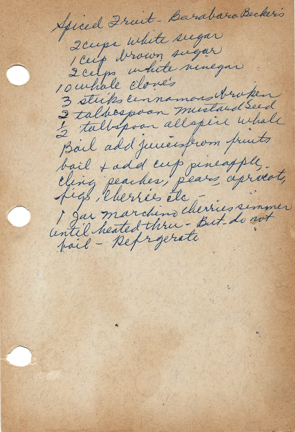 Spiced Fruit - Barabara Becker's
2 cups white sugar
1 cup brown sugar
2 cups white vinegar
10 whole cloves
3 sticks cinnamon broken
1/2 talbespoon mustard seed
1/2 talbspoon allspice whole
Boil add juices from fruits
boil & add cup pineapple,
cling peaches, pears, apricots,
figs, cherries etc -
1 jar marchino cherries simmer
until heated thru - But do not
boil - Refrgerate